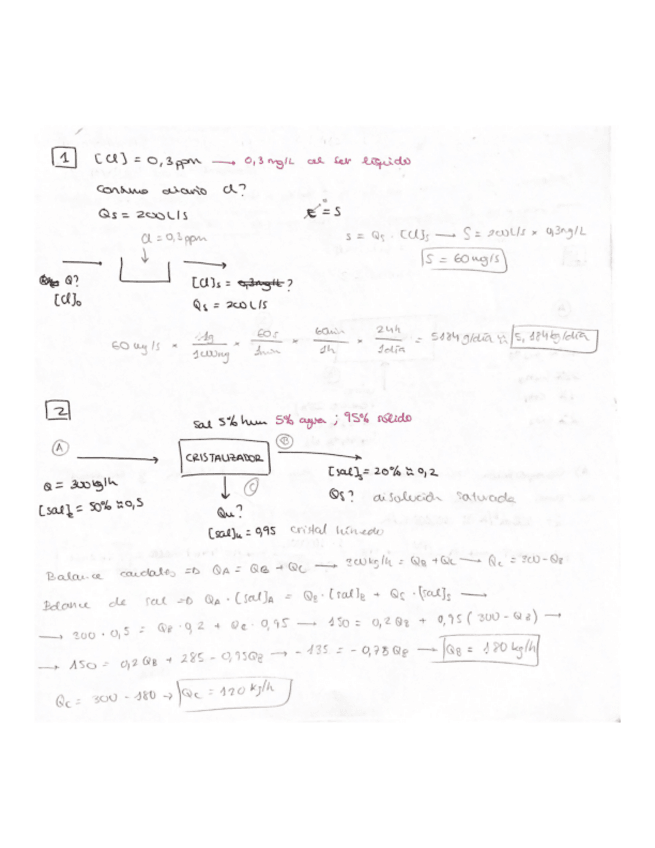 1 [Cl] = 0,3 ppm → 0,3 mg/L al ser líquido
consumo diario Cl?
Qs = 200 L/s E = S
Cl = 0,3 ppm S = Qs · [Cl]s → S = 200 L/s × 0,3 mg/L
S = 60 mg/s
Q? [Cl]s = 0,3 mg/L ?
[Cl]o Qs = 200 L/s
60 mg/s × 1g/1000mg × 60s/1min × 60min/1h × 24h/1día = 5184 g/día ≈ 5,184 kg/día
2
Sal 5% hum 5% agua ; 95% sólido
A CRISTALIZADOR B
Q = 300 kg/h [sal]s = 20% ≈ 0,2
[sal]E = 50% ≈ 0,5 C Qs? disolución saturada
Qu?
[sal]u = 0,95 cristal húmedo
Balance caudales => QA = QB + QC → 300 kg/h = QB + QC → QC = 300 - QB
Balance de sal => QA · [sal]A = QB · [sal]B + QC · [sal]S →
→ 300 · 0,5 = QB · 0,2 + QC · 0,95 → 150 = 0,2 QB + 0,95 (300 - QB) →
→ 150 = 0,2 QB + 285 - 0,95QB → - 135 = - 0,75 QB → QB = 180 kg/h
QC = 300 - 180 → QC = 120 kg/h